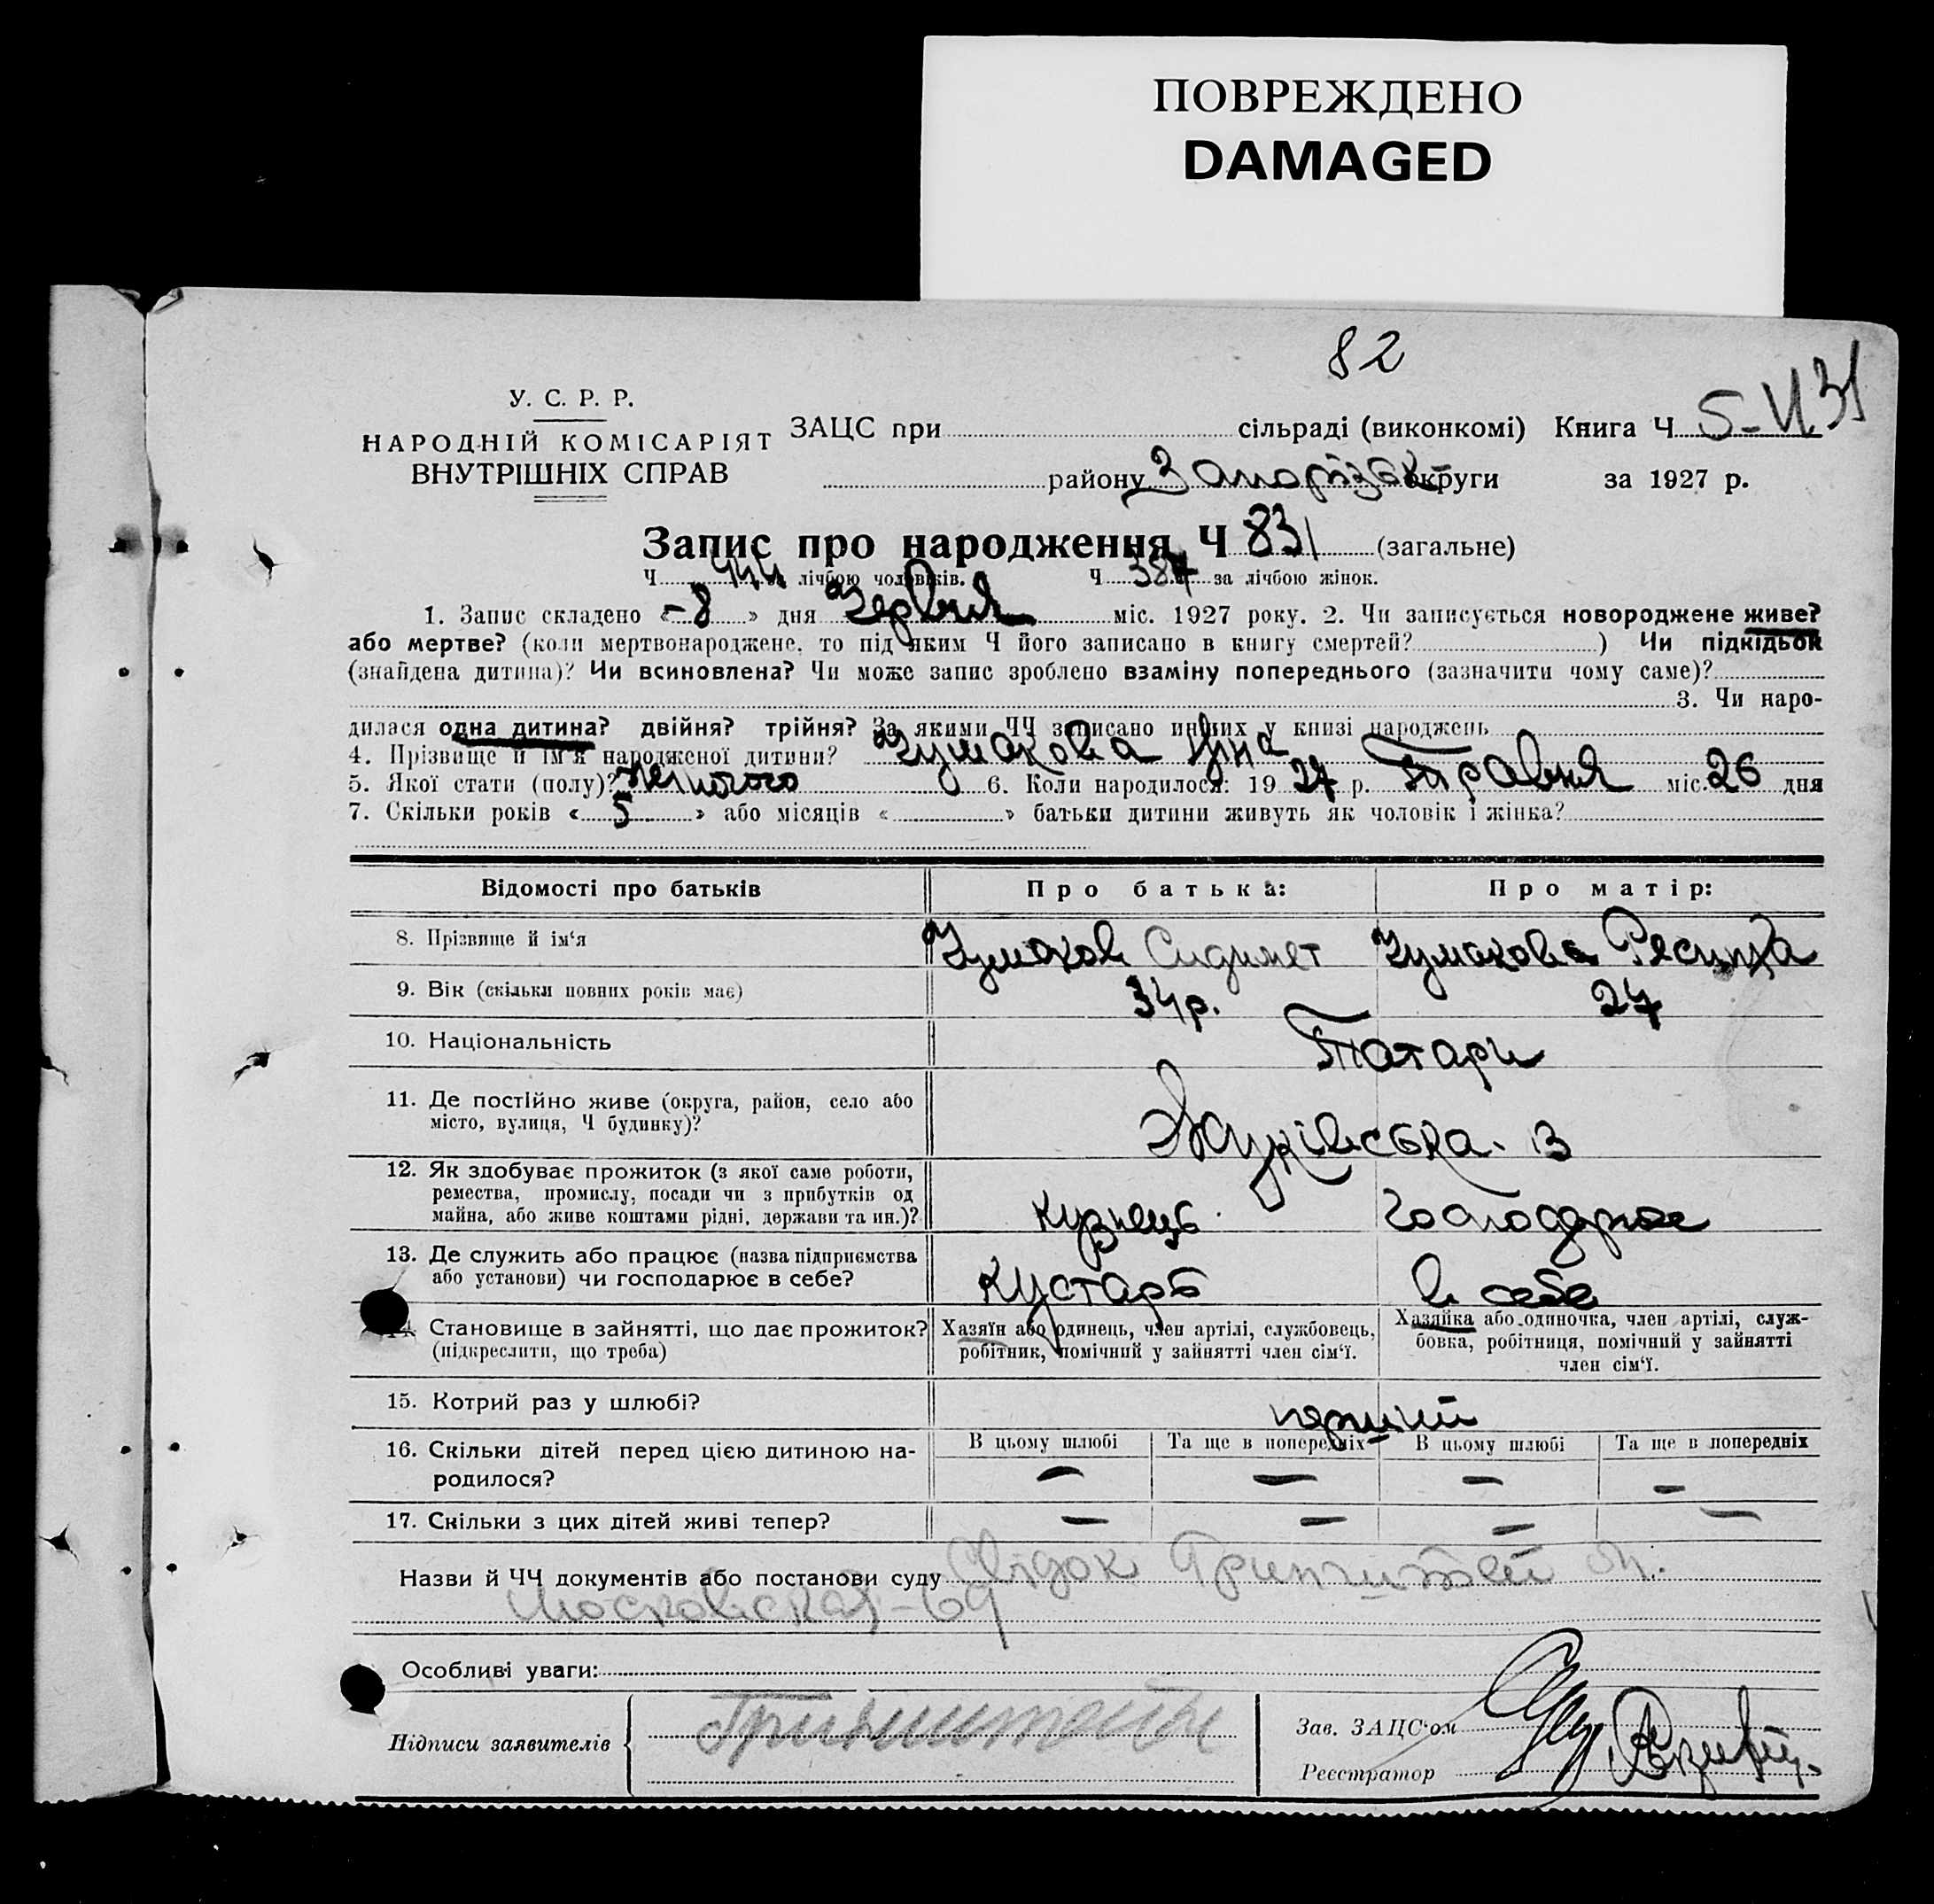 ПОВРЕЖДЕНО
DAMAGED
82
У. С. Р. Р.
НАРОДНІЙ КОМІСАРІЯТ
ВНУТРІШНІХ СПРАВ
ЗАЦС при сільраді (виконкомі) Книга Ч 5-
району Запорізьк округи за 1927 р.
Запис про народження Ч 831 (загальне)
Ч 444 за лічбою чоловіків. Ч 387 за лічбою жінок.
1. Запис складено «-8» дня Червня міс. 1927 року. 2. Чи записується новороджене живе?
або мертве? (коли мертвонароджене, то під яким Ч його записано в книгу смертей? ) Чи підкідьок
(знайдена дитина)? Чи всиновлена? Чи може запис зроблено взаміну попереднього (зазначити чому саме)?
3. Чи наро-
дилася одна дитина? двійня? трійня? За якими ЧЧ записано инших у книзі народжень
4. Прізвище й ім'я народженої дитини? Чумакова
5. Якої стати (полу)? Жіночого 6. Коли народилося: 1927 р. Травня міс. 26 дня
7. Скільки років «5» або місяців « » батьки дитини живуть як чоловік і жінка?
Відомості про батьків Про батька: Про матір:
8. Прізвище й ім'я Чумаков Чумакова
9. Вік (скільки повних років має) 34р. 27
10. Національність Татари
11. Де постійно живе (округа, район, село або
місто, вулиця, Ч будинку)? Жуківська. 13
12. Як здобуває прожиток (з якої саме роботи,
ремества, промислу, посади чи з прибутків од
майна, або живе коштами рідні, держави та ин.)? Кузнець. Господарює
13. Де служить або працює (назва підприємства
або установи) чи господарює в себе? Кустарь в себе
14. Становище в зайнятті, що дає прожиток?
(підкреслити, що треба)
Хазяїн або одинець, член артілі, службовець,
робітник, помічний у зайнятті член сім'ї.
Хазяйка або одиночка, член артілі, служ-
бовка, робітниця, помічний у зайнятті
член сім'ї.
15. Котрий раз у шлюбі? перший
16. Скільки дітей перед цією дитиною на-
родилося?
В цьому шлюбі Та ще в попередніх В цьому шлюбі Та ще в попередніх
— — — —
17. Скільки з цих дітей живі тепер? — — — —
Назви й ЧЧ документів або постанови суду Свідок
Московская-69
Особливі уваги:
Підписи заявителів
Зав. ЗАЦС'ом
Реєстратор